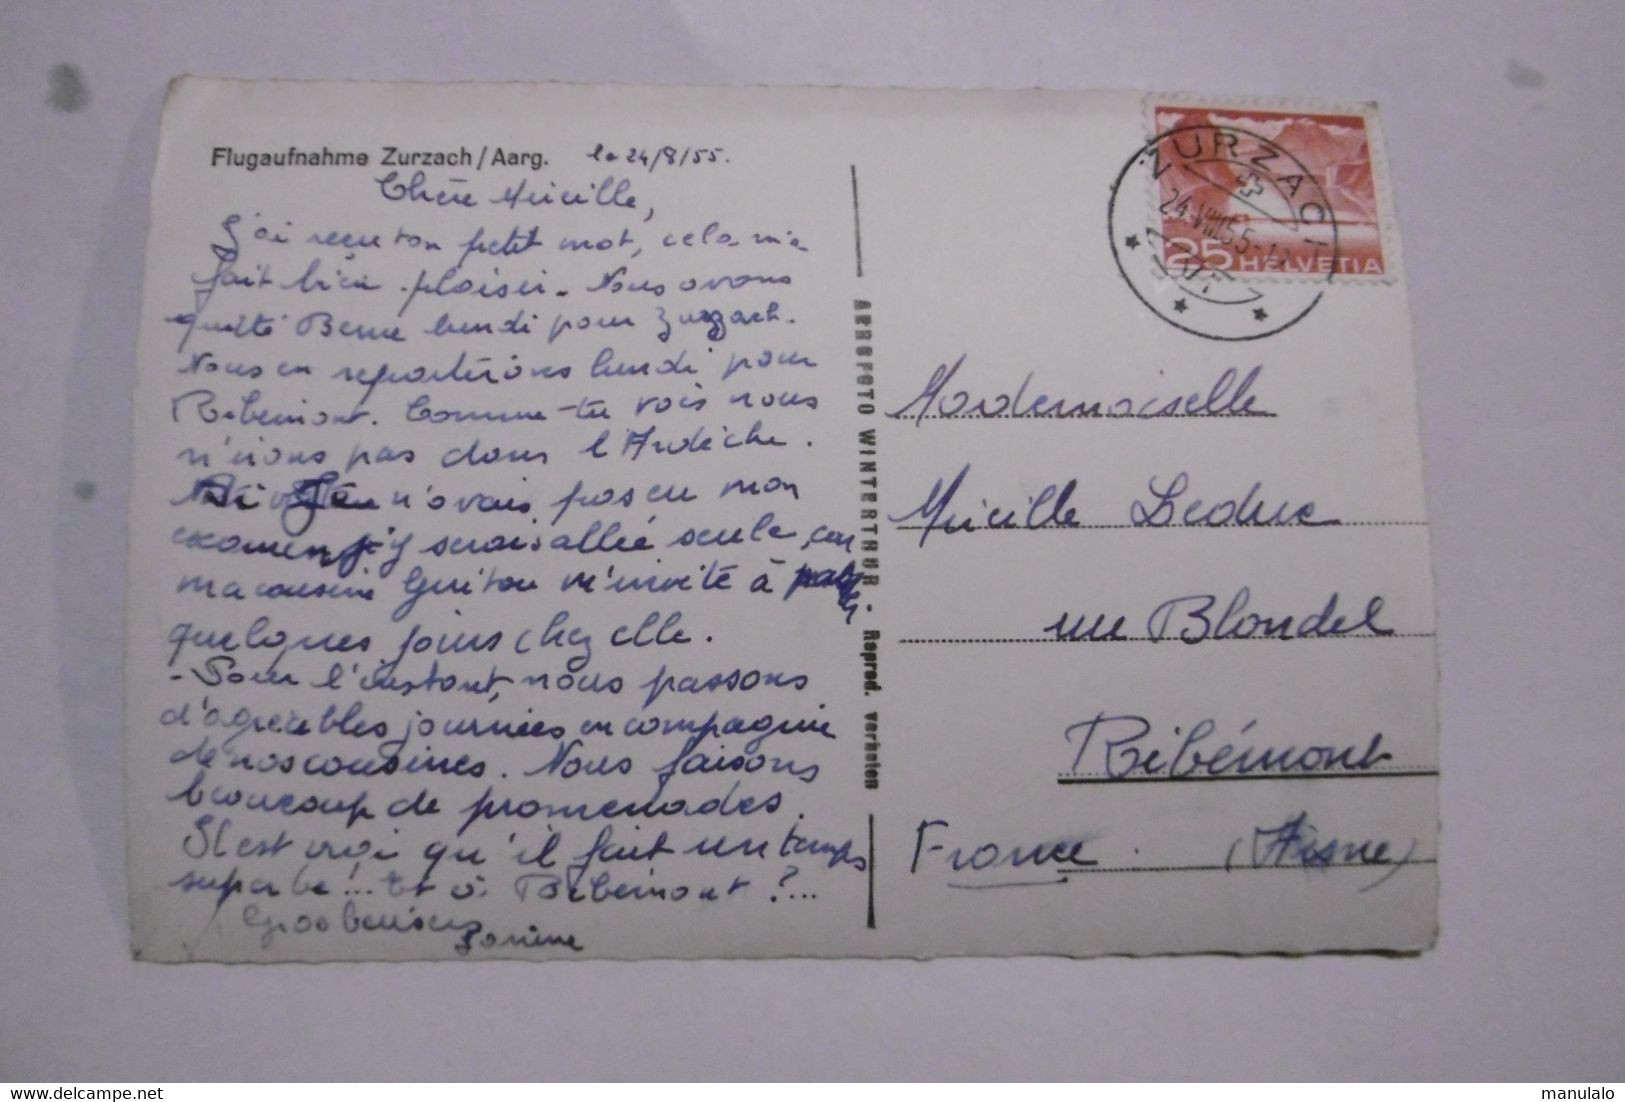 Flugaufnahme Zurzach / Aarg. le 24/8/55.
Chère Mireille,
J'ai reçu ton petit mot, cela m'a
fait bien plaisir. Nous avons
quitté Berne lundi pour Zurzach.
Nous en repartirons lundi pour
Ribemont. Comme tu vois nous
n'irons pas dans l'Ardèche.
Si je n'avais pas eu mon
examen j'y serais allée seule, car
ma cousine Guiton m'invite à
quelques jours chez elle.
- Pour l'instant, nous passons
d'agréables journées en compagnie
de nos cousines. Nous faisons
beaucoup de promenades.
Il est vrai qu'il fait un temps
superbe !... Et à Ribemont ?...
Gros baisers
Janine
AEROFOTO WINTERTHUR - Reprod. verboten
ZURZACH
24.VIII.55
25 HELVETIA
Mademoiselle
Mireille Leduc
rue Blondel
Ribémont
France. (Aisne)
manulalo